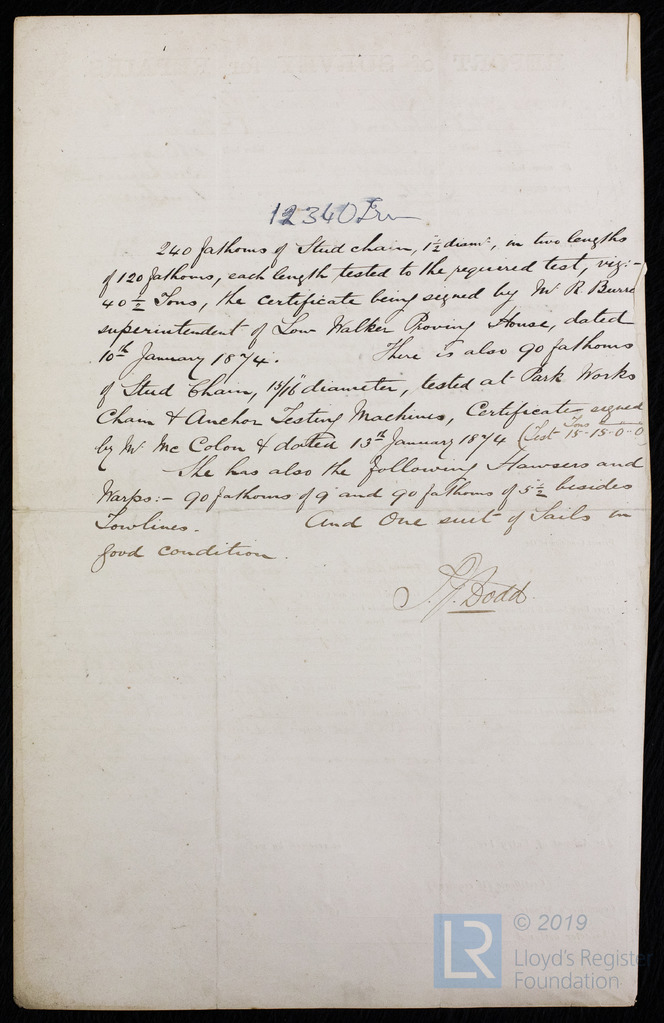 REPORT of SURVEY for REPAIRS
12340 Irn
240 fathoms of Stud chain, 1½" diamr, in two lengths
of 120 fathoms, each length tested to the required test, viz:-
40 ½ Tons, the certificate being signed by Mr R. Burre
superintendent of Low Walker Proving House, dated
10th January 1874. There is also 90 fathoms
of Stud Chain, 15/16" diameter, tested at Park Works
Chain & Anchor Testing Machines, Certificate signed
by Mr Mc Colon & dated 13th January 1874 (Test Tons 15-15-0-0
She has also the following Hawsers and
Warps:- 90 fathoms of 9" and 90 fathoms of 5½ besides
Towlines. And One suit of Sails in
good condition.
Dodd.
LR
© 2019
Lloyd's Register
Foundation